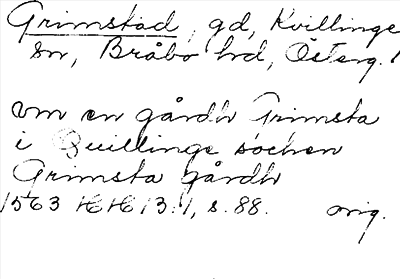 Grimstad, gd, Kvillinge
sn, Bråbo hd, Österg.
vm en gårdh Grimsta
i Quillinge sochen
Grimsta gårdh
1563 HH 13:1, s. 88. orig.